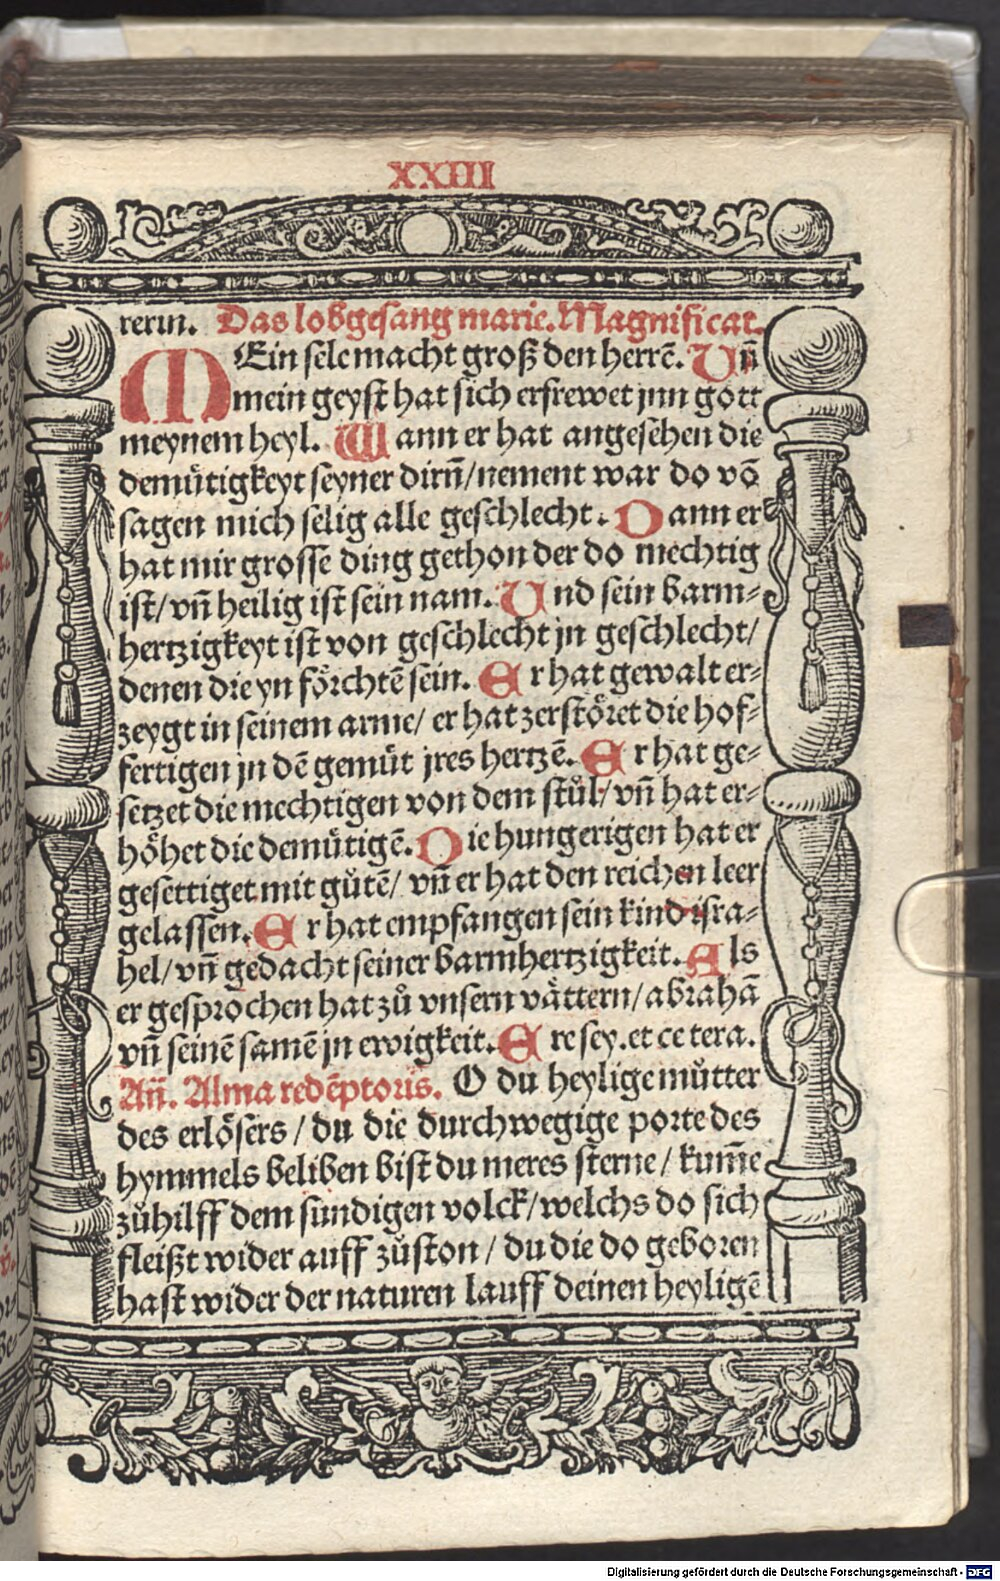 XXIIII
rerin. Das lobgesang marie. Magnificat.
MEin sele macht groß den herrē. Vñ
mein geyst hat sich erfrewet jnn gott
meynem heyl. Wann er hat angesehen die
demütigkeyt seyner dirñ/nement war do vō
sagen mich selig alle geschlecht. Dann er
hat mir grosse ding gethon der do mechtig
ist/vñ heilig ist sein nam. Vnd sein barm⸗
hertzigkeyt ist von geschlecht jn geschlecht/
denen die yn förchtē sein. Er hat gewalt er⸗
zeygt in seinem arme/ er hat zerstöret die hof⸗
fertigen jn dē gemüt jres hertzē. Er hat ge⸗
setzet die mechtigen von dem stůl/vñ hat er⸗
höhet die demütigē. Die hungerigen hat er
gesettiget mit gůtē/ vñ er hat den reichen leer
gelassen. Er hat empfangen sein kind isra⸗
hel/vñ gedacht seiner barmhertzigkeit. Als
er gesprochen hat zů vnsern vättern/abrahā
vñ seinē samē jn ewigkeit. Ere sey.et cetera.
Añ. Alma redēptoris. O du heylige můtter
des erlösers/du die durchwegige porte des
hymmels beliben bist du meres sterne/kum̄e
zůhilff dem sündigen volck/welchs do sich
fleißt wider auff zůston/du die do geboren
hast wider der naturen lauff deinen heyligē
Digitalisierung gefördert durch die Deutsche Forschungsgemeinschaft - DFG